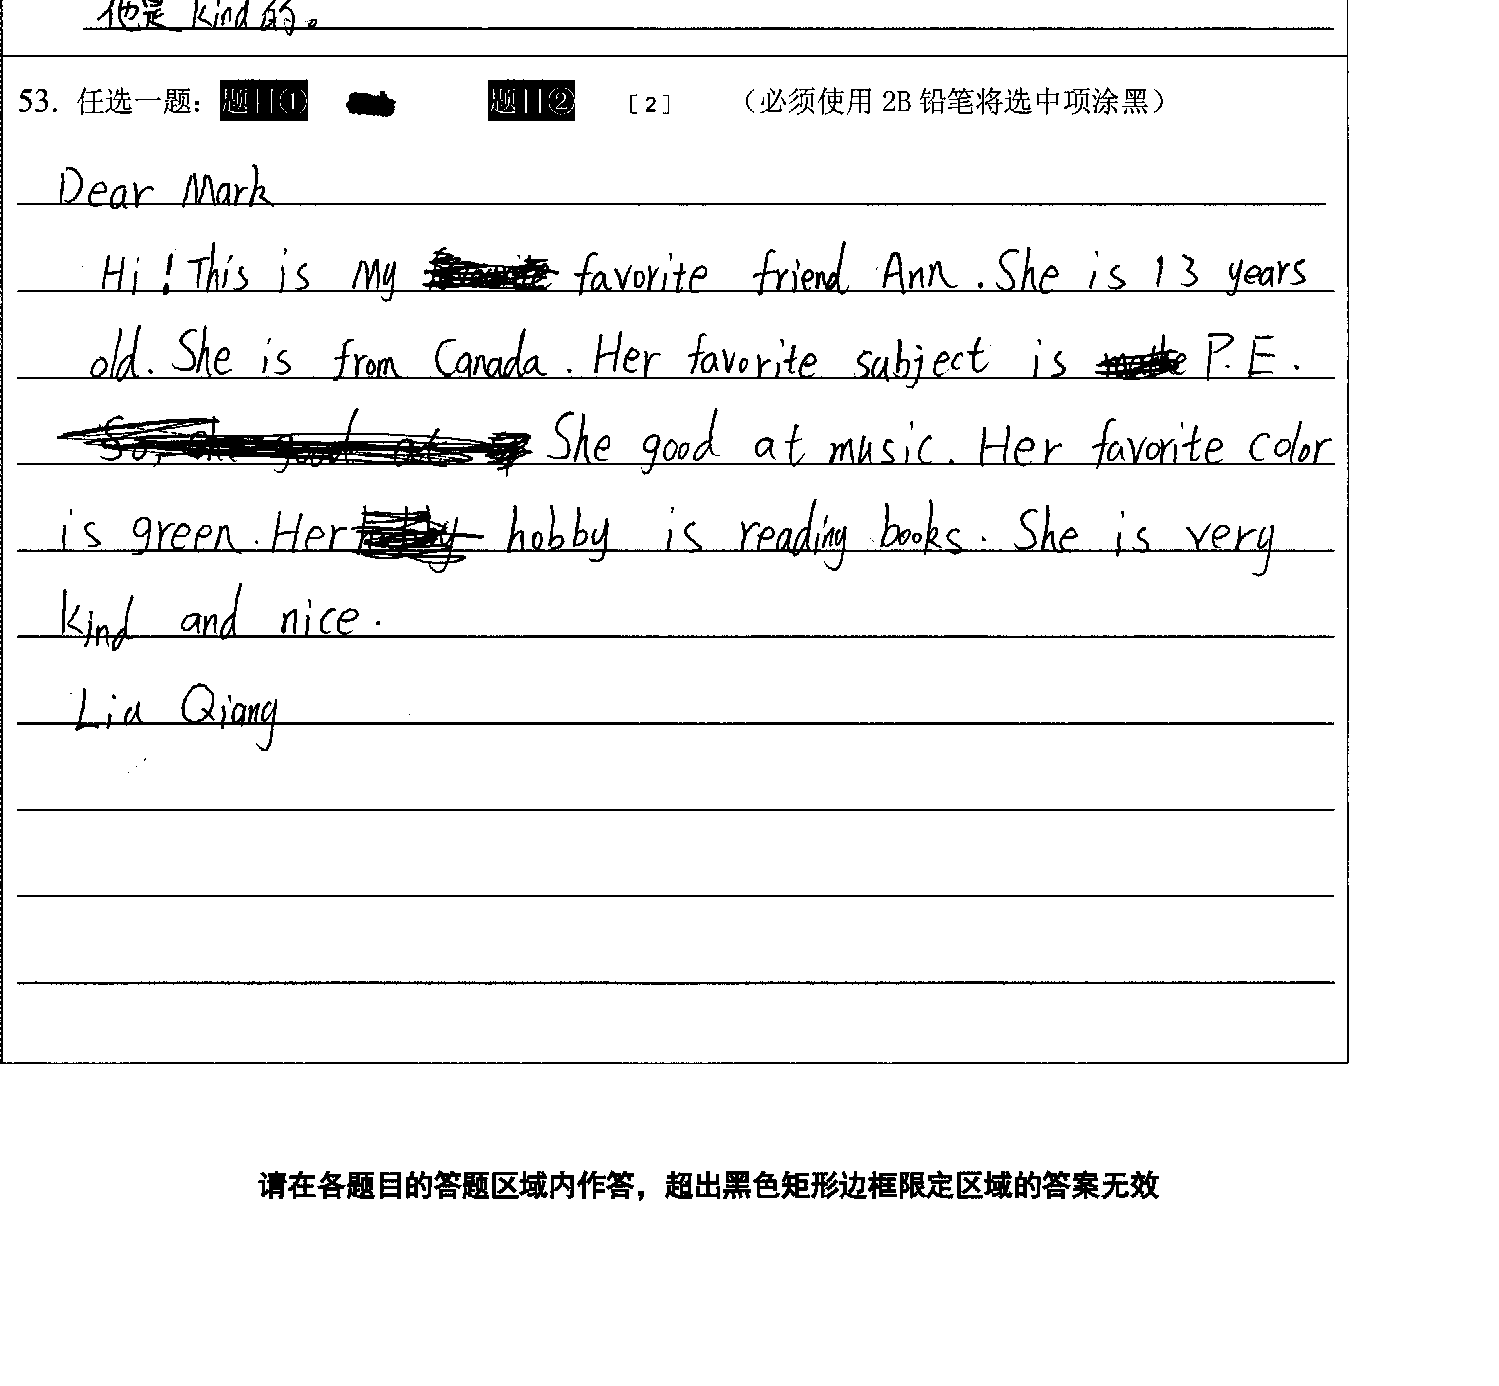 他是 kind 的。
53. 任选一题： 题目① 题目② [2] （必须使用 2B 铅笔将选中项涂黑）
Dear Mark
Hi! This is my favorite friend Ann. She is 13 years
old. She is from Canada. Her favorite subject is P.E.
She good at music. Her favorite color
is green. Her hobby is reading books. She is very
kind and nice.
Liu Qiang
请在各题目的答题区域内作答，超出黑色矩形边框限定区域的答案无效